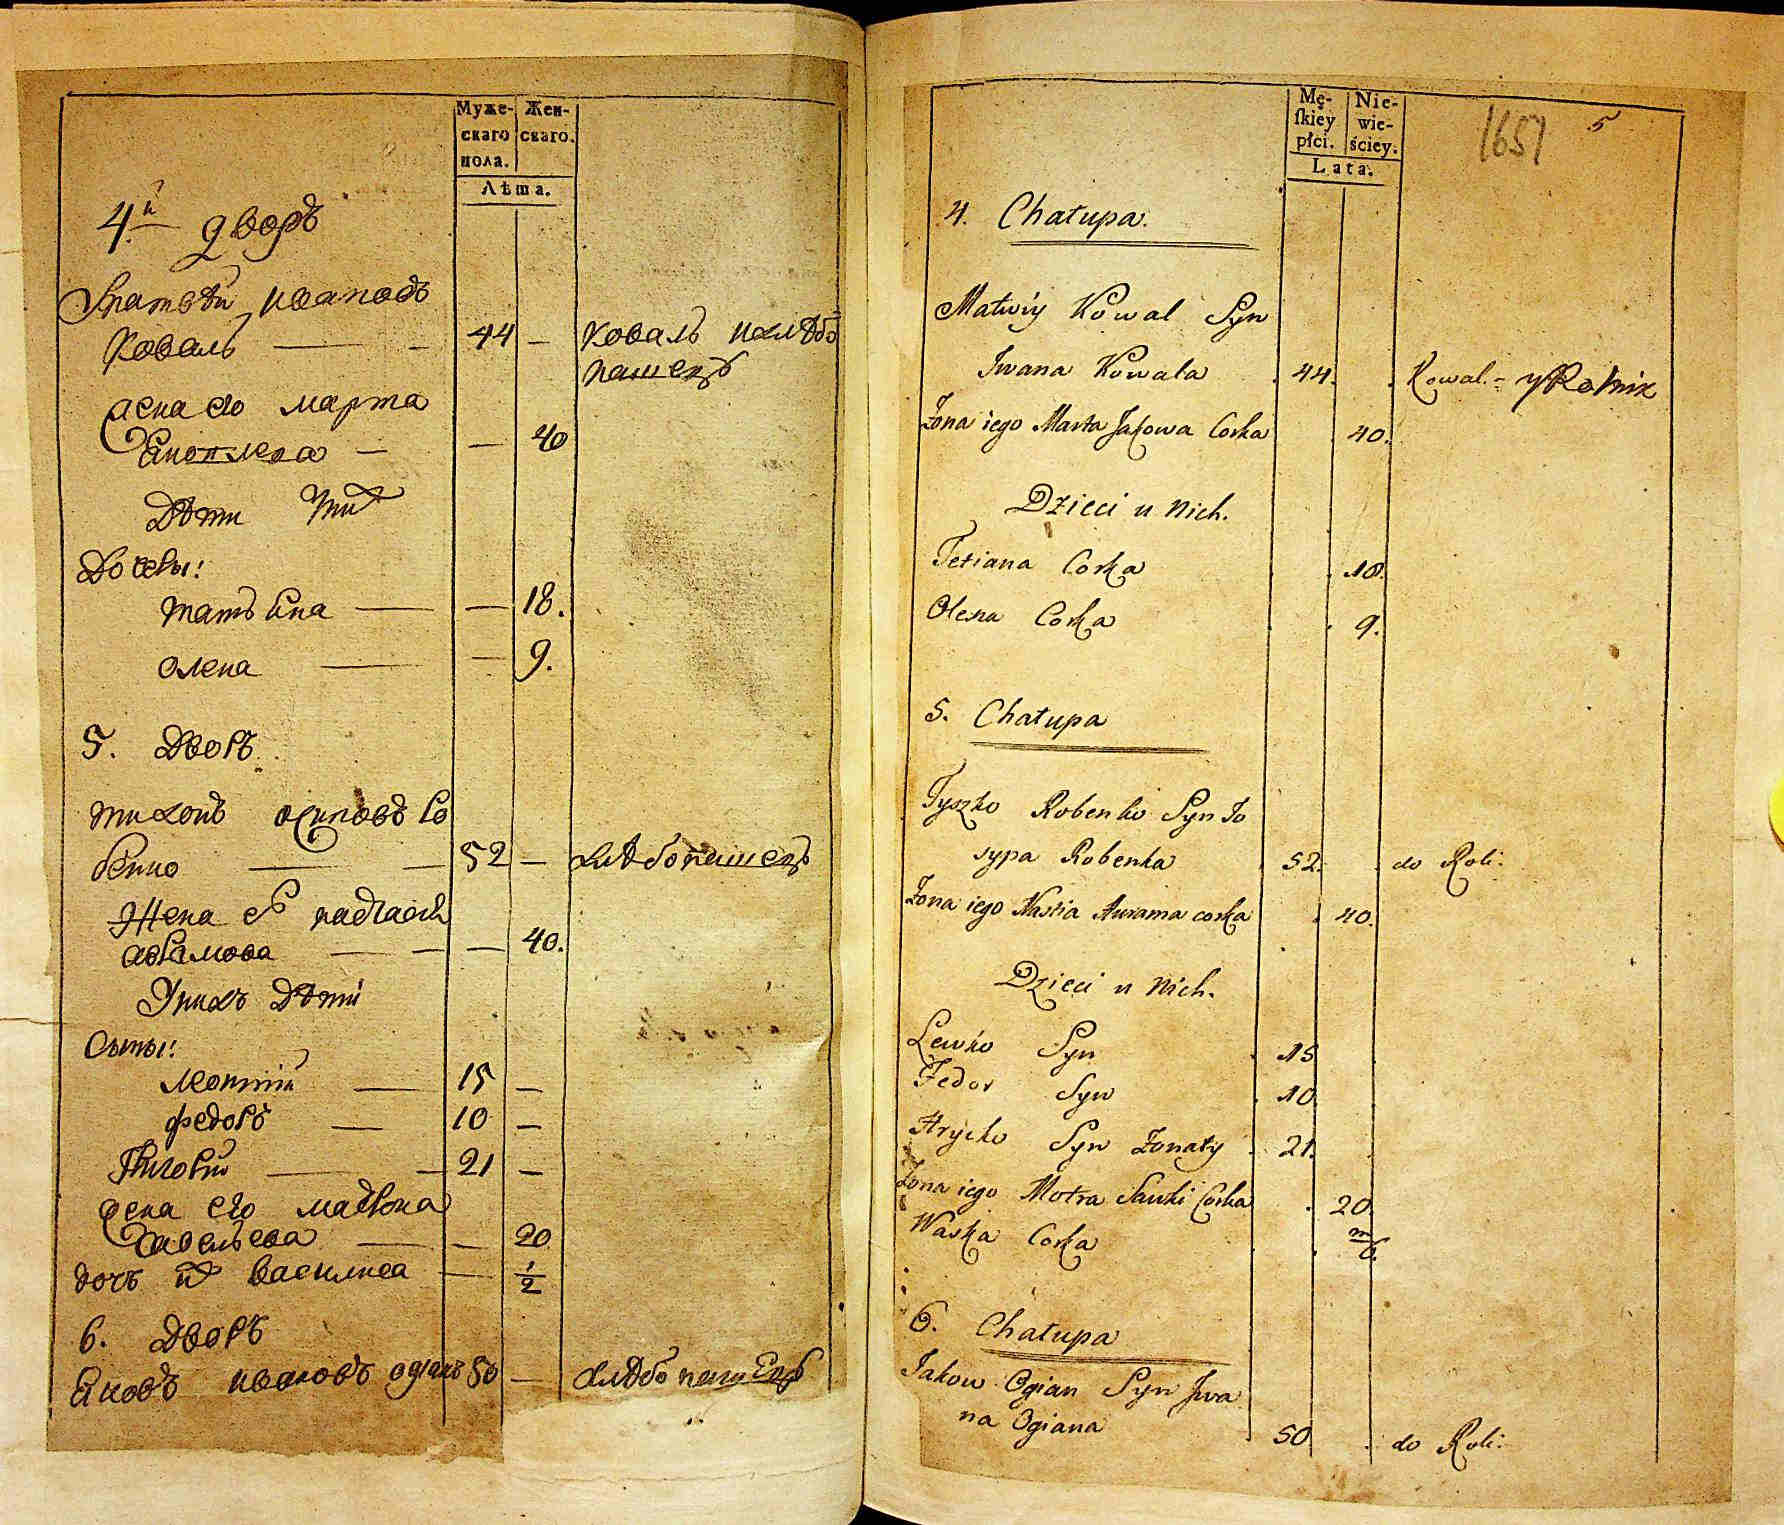 Муже-
скаго
пола.
Жен-
скаго.
Лѣта.
4.й дворъ
Матвѣй ивановъ
Коваль — 44 — коваль ихлѣбо
пашецъ
жена его марта
Яковлева — — 40
Дѣти ихъ
Дочеры:
татьяна — — 18.
олена — — 9.
5. Дворъ
тихонъ осиповъ Ро
бенко — 52 — хлѣбопашецъ
Жена его настасія
аврамова — — 40.
У нихъ Дѣти
Сыны:
леонтій — 15 —
федоръ — 10 —
Григорій — 21 —
жена его матрона
Савельева — — 20
дочъ ихъ василиса — 1/2
6. Дворъ
Яковъ ивановъ огіанъ 50 — хлѣбопашецъ
Mę-
ſkiey
płci.
Nie-
wie-
ściey.
Lata.
1651 5
4. Chałupa.
Matwiy Kowal Syn
Iwana Kowala 44. Kowal - y Rolnik
Żona iego Marta Jakowa Corka 40.
Dzieci u Nich.
Tetiana Corka 18.
Olena Corka 9.
5. Chałupa
Tyszko Robenko Syn Io
sypa Robenka 52. do Roli.
Żona iego Nastia Awrama corka 40.
Dzieci u Nich.
Lewko Syn 15
Fedor Syn 10
Hrycko Syn Żonaty 21.
Żona iego Motra Sawki Corka 20.
Waska Corka m/6.
6. Chałupa
Jakow Ogian Syn Iwa
na Ogiana 50 do Roli.